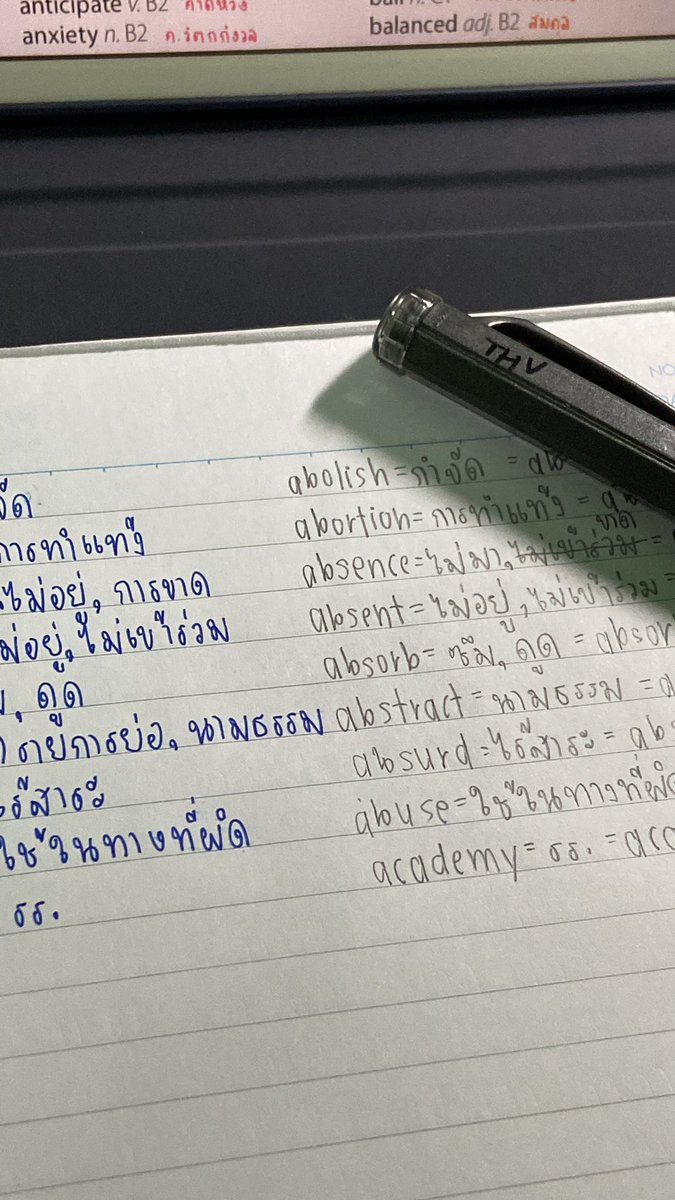 anticipate v. B2 คาดหวัง
anxiety n. B2 ค.วิตกกังวล
balanced adj. B2 สมดุล
THV
NO
abolish=กำจัด =
การทำแท้ง abortion=การทำแท้ง =
ไม่อยู่, การขาด absence=ไม่มา, ไม่เข้าร่วม ขาด =
ไม่อยู่, ไม่เข้าร่วม absent=ไม่อยู่, ไม่เข้าร่วม =
, ดูด absorb=ซึม, ดูด = absor
รายการย่อ, นามธรรม abstract=นามธรรม = a
ไร้สาระ absurd=ไร้สาระ = abs
ใช้ในทางที่ผิด abuse=ใช้ในทางที่ผิด
รร. academy= รร. = aca